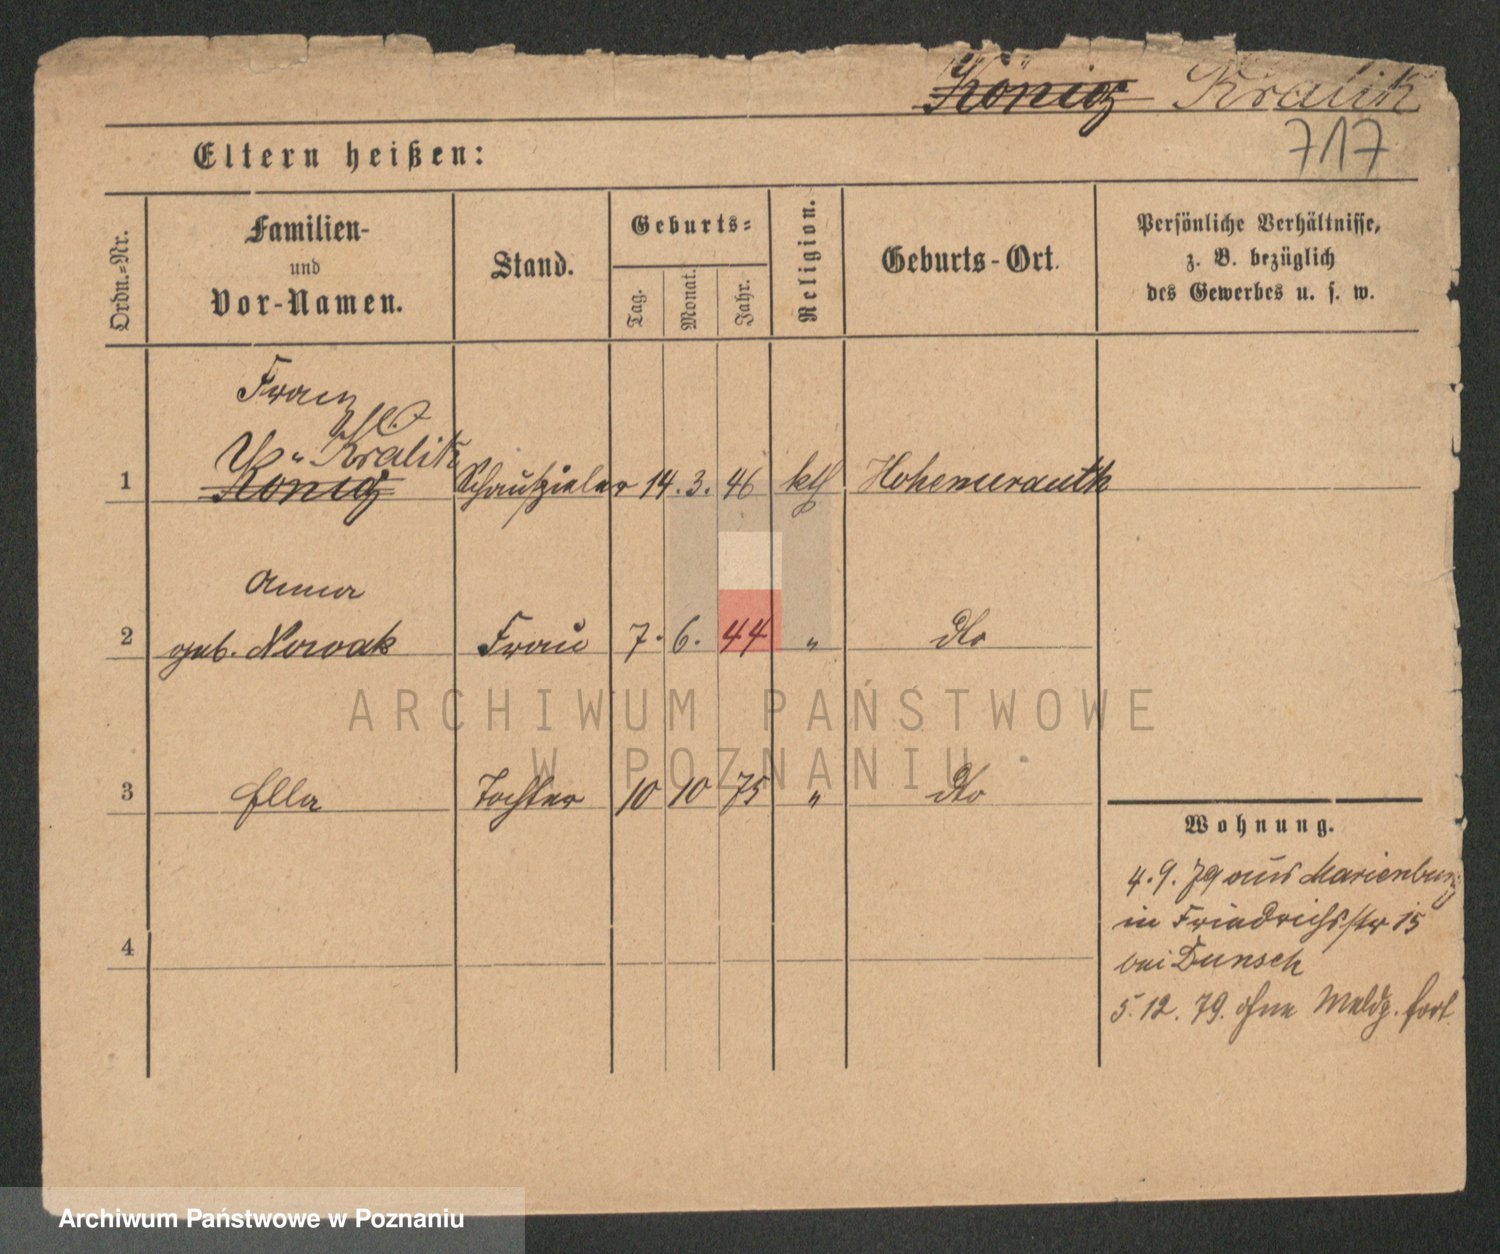 König Kralik
717
Eltern heißen:
Ordn.-Nr.
Familien-
und
Vor-Namen.
Stand.
Geburts-
Tag.
Monat.
Jahr.
Religion.
Geburts-Ort.
Persönliche Verhältnisse,
z. B. bezüglich
des Gewerbes u. s. w.
Franz
Kralik
1 König Schauspieler 14. 3. 46 kth
Anna
2 geb. Nowak Frau 7. 6. 44 " dto
3 Ella Tochter 10 10 75 " dto
4
Wohnung.
4. 9. 79 aus Marienburg
in Friedrichsstr 15
bei Dunsch
5. 12. 79. ohne Meldg. fort
ARCHIWUM PAŃSTWOWE
W POZNANIU
Archiwum Państwowe w Poznaniu